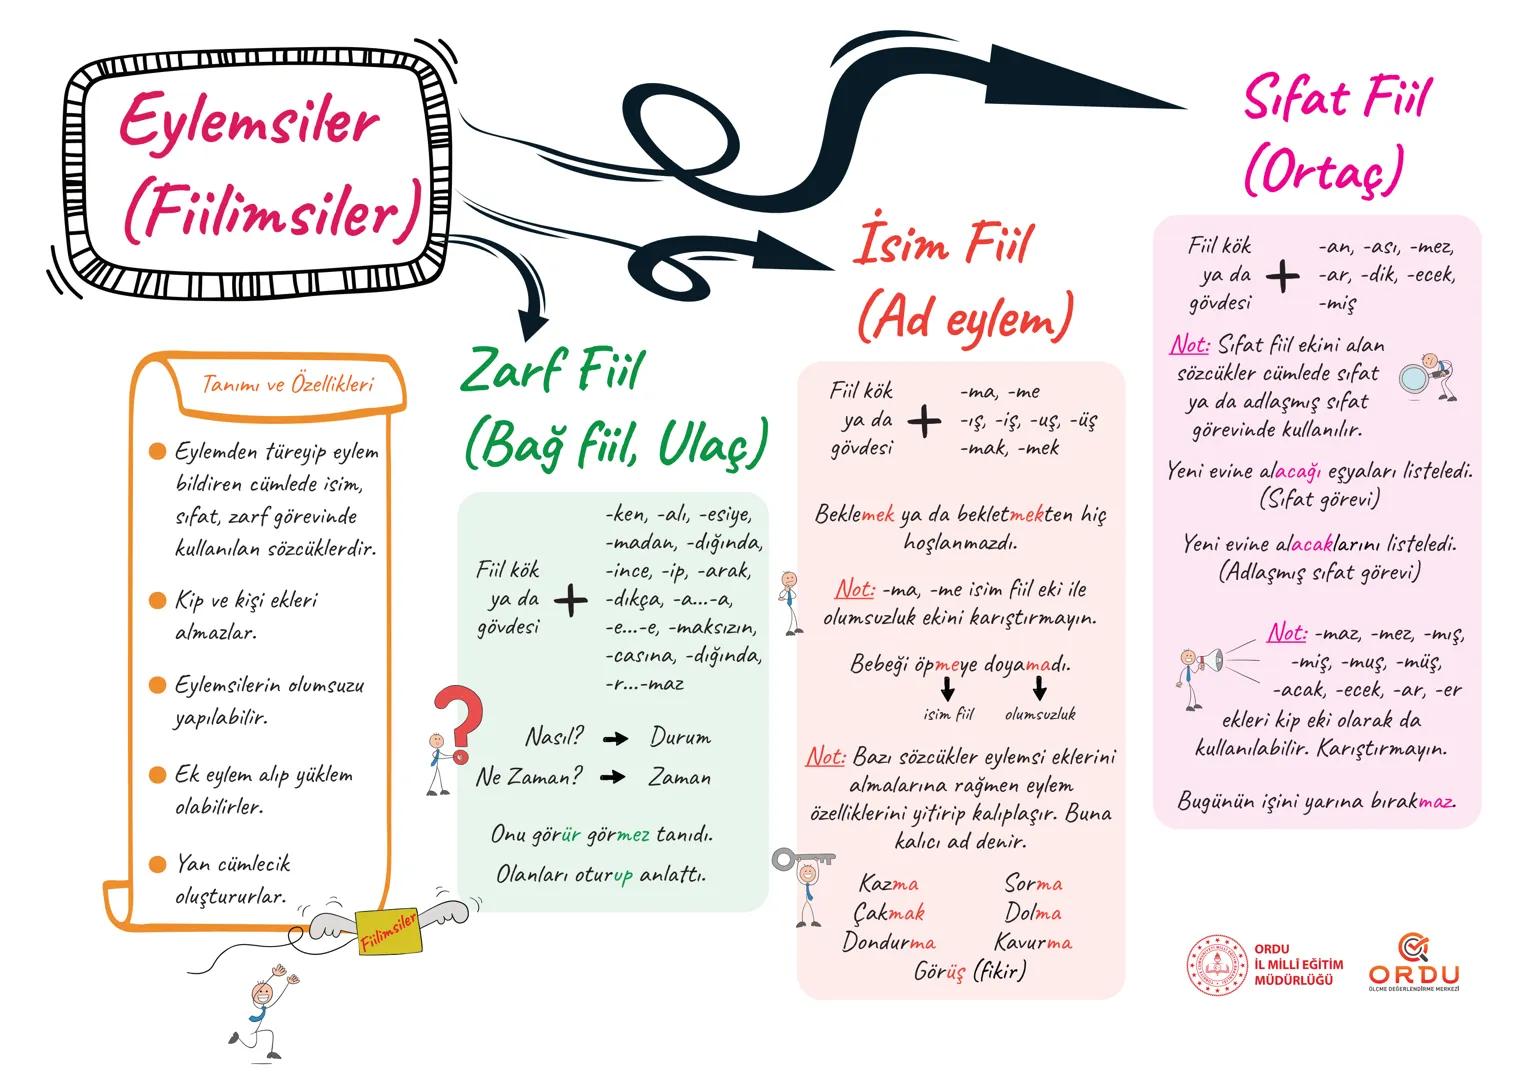 Eylemsiler
(Fiilimsiler)
Tanımı ve Özellikleri
Eylemden türeyip eylem
bildiren cümlede isim,
sıfat, zarf görevinde
kullanılan sözcüklerdir.
Kip ve kişi ekleri
almazlar.
Eylemsilerin olumsuzu
yapılabilir.
Ek eylem alıp yüklem
olabilirler.
Yan cümlecik
oluştururlar.
Fiilimsiler
Zarf Fiil
(Bağ fiil, Ulaç)
Fiil kök
ya da
gövdesi
+
-ken, -alı, -esiye,
-madan, -dığında,
-ince, -ip, -arak,
-dıkça, -a...-a,
-e...-e, -maksızın,
-casına, -dığında,
-r...-maz
Nasıl? → Durum
Ne Zaman? → Zaman
Onu görür görmez tanıdı.
Olanları oturup anlattı.
İsim Fiil
(Ad eylem)
Fiil kök
ya da
gövdesi
+
-ma, -me
-ış, -iş, -uş, -üş
-mak, -mek
Beklemek ya da bekletmekten hiç
hoşlanmazdı.
Not: -ma, -me isim fiil eki ile
olumsuzluk ekini karıştırmayın.
Bebeği öpmeye doyamadı.
isim fiil olumsuzluk
Not: Bazı sözcükler eylemsi eklerini
almalarına rağmen eylem
özelliklerini yitirip kalıplaşır. Buna
kalıcı ad denir.
Kazma Sorma
Çakmak Dolma
Dondurma Kavurma
Görüş (fikir)
Sıfat Fiil
(Ortaç)
Fiil kök
ya da
gövdesi
+
-an, -ası, -mez,
-ar, -dik, -ecek,
-miş
Not: Sıfat fiil ekini alan
sözcükler cümlede sıfat
ya da adlaşmış sıfat
görevinde kullanılır.
Yeni evine alacağı eşyaları listeledi.
(Sıfat görevi)
Yeni evine alacaklarını listeledi.
(Adlaşmış sıfat görevi)
Not: -maz, -mez, -mış,
-miş, -muş, -müş,
-acak, -ecek, -ar, -er
ekleri kip eki olarak da
kullanılabilir. Karıştırmayın.
Bugünün işini yarına bırakmaz.
ORDU
İL MİLLÎ EĞİTİM
MÜDÜRLÜĞÜ
ORDU
ÖLÇME DEĞERLENDİRME MERKEZİ